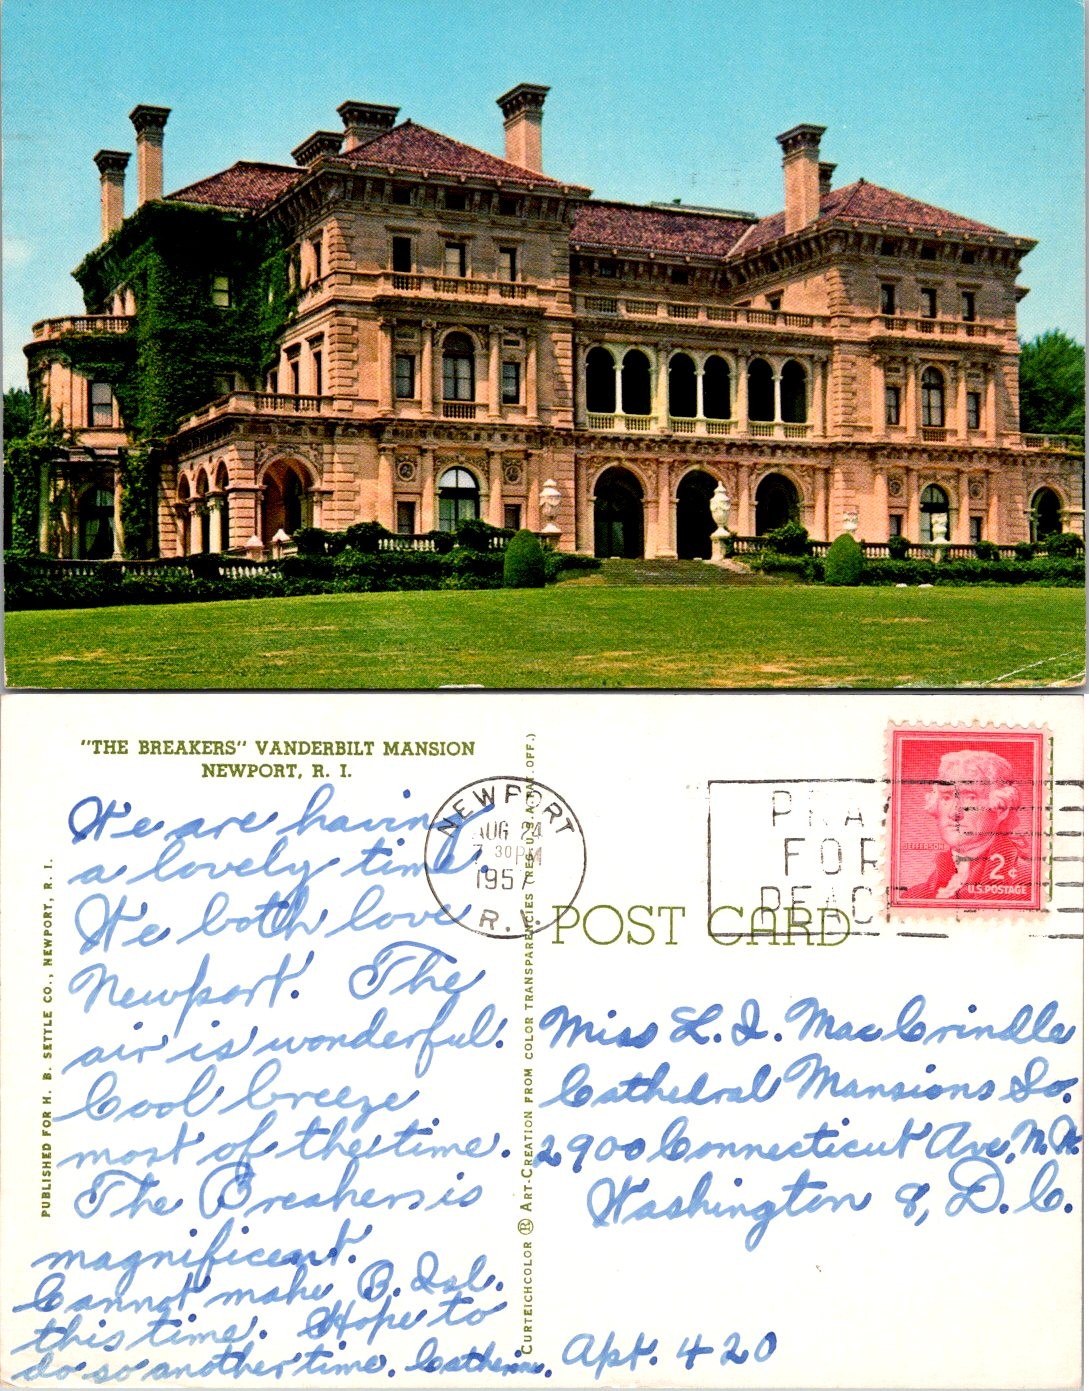 "THE BREAKERS" VANDERBILT MANSION
NEWPORT, R. I.
We are having
a lovely time.
We both love
Newport. The
air is wonderful.
Cool breeze
most of the time.
The Breakers is
magnificent.
Cannot make B. Isl.
this time. Hope to
do so another time. Catherine.
PUBLISHED FOR H. B. SETTLE CO., NEWPORT, R. I.
CURTEICHCOLOR ® ART-CREATION FROM COLOR TRANSPARENCIES (REG. U.S.A. PAT. OFF.)
NEWPORT
AUG 24
7 30 PM
1957
R.I.
PRAY
FOR
PEACE
JEFFERSON
2¢
U.S. POSTAGE
POST CARD
Miss L. I. MacCrindle
Cathedral Mansions So.
2900 Connecticut Ave, N.W.
Washington 8, D.C.
Apt. 420